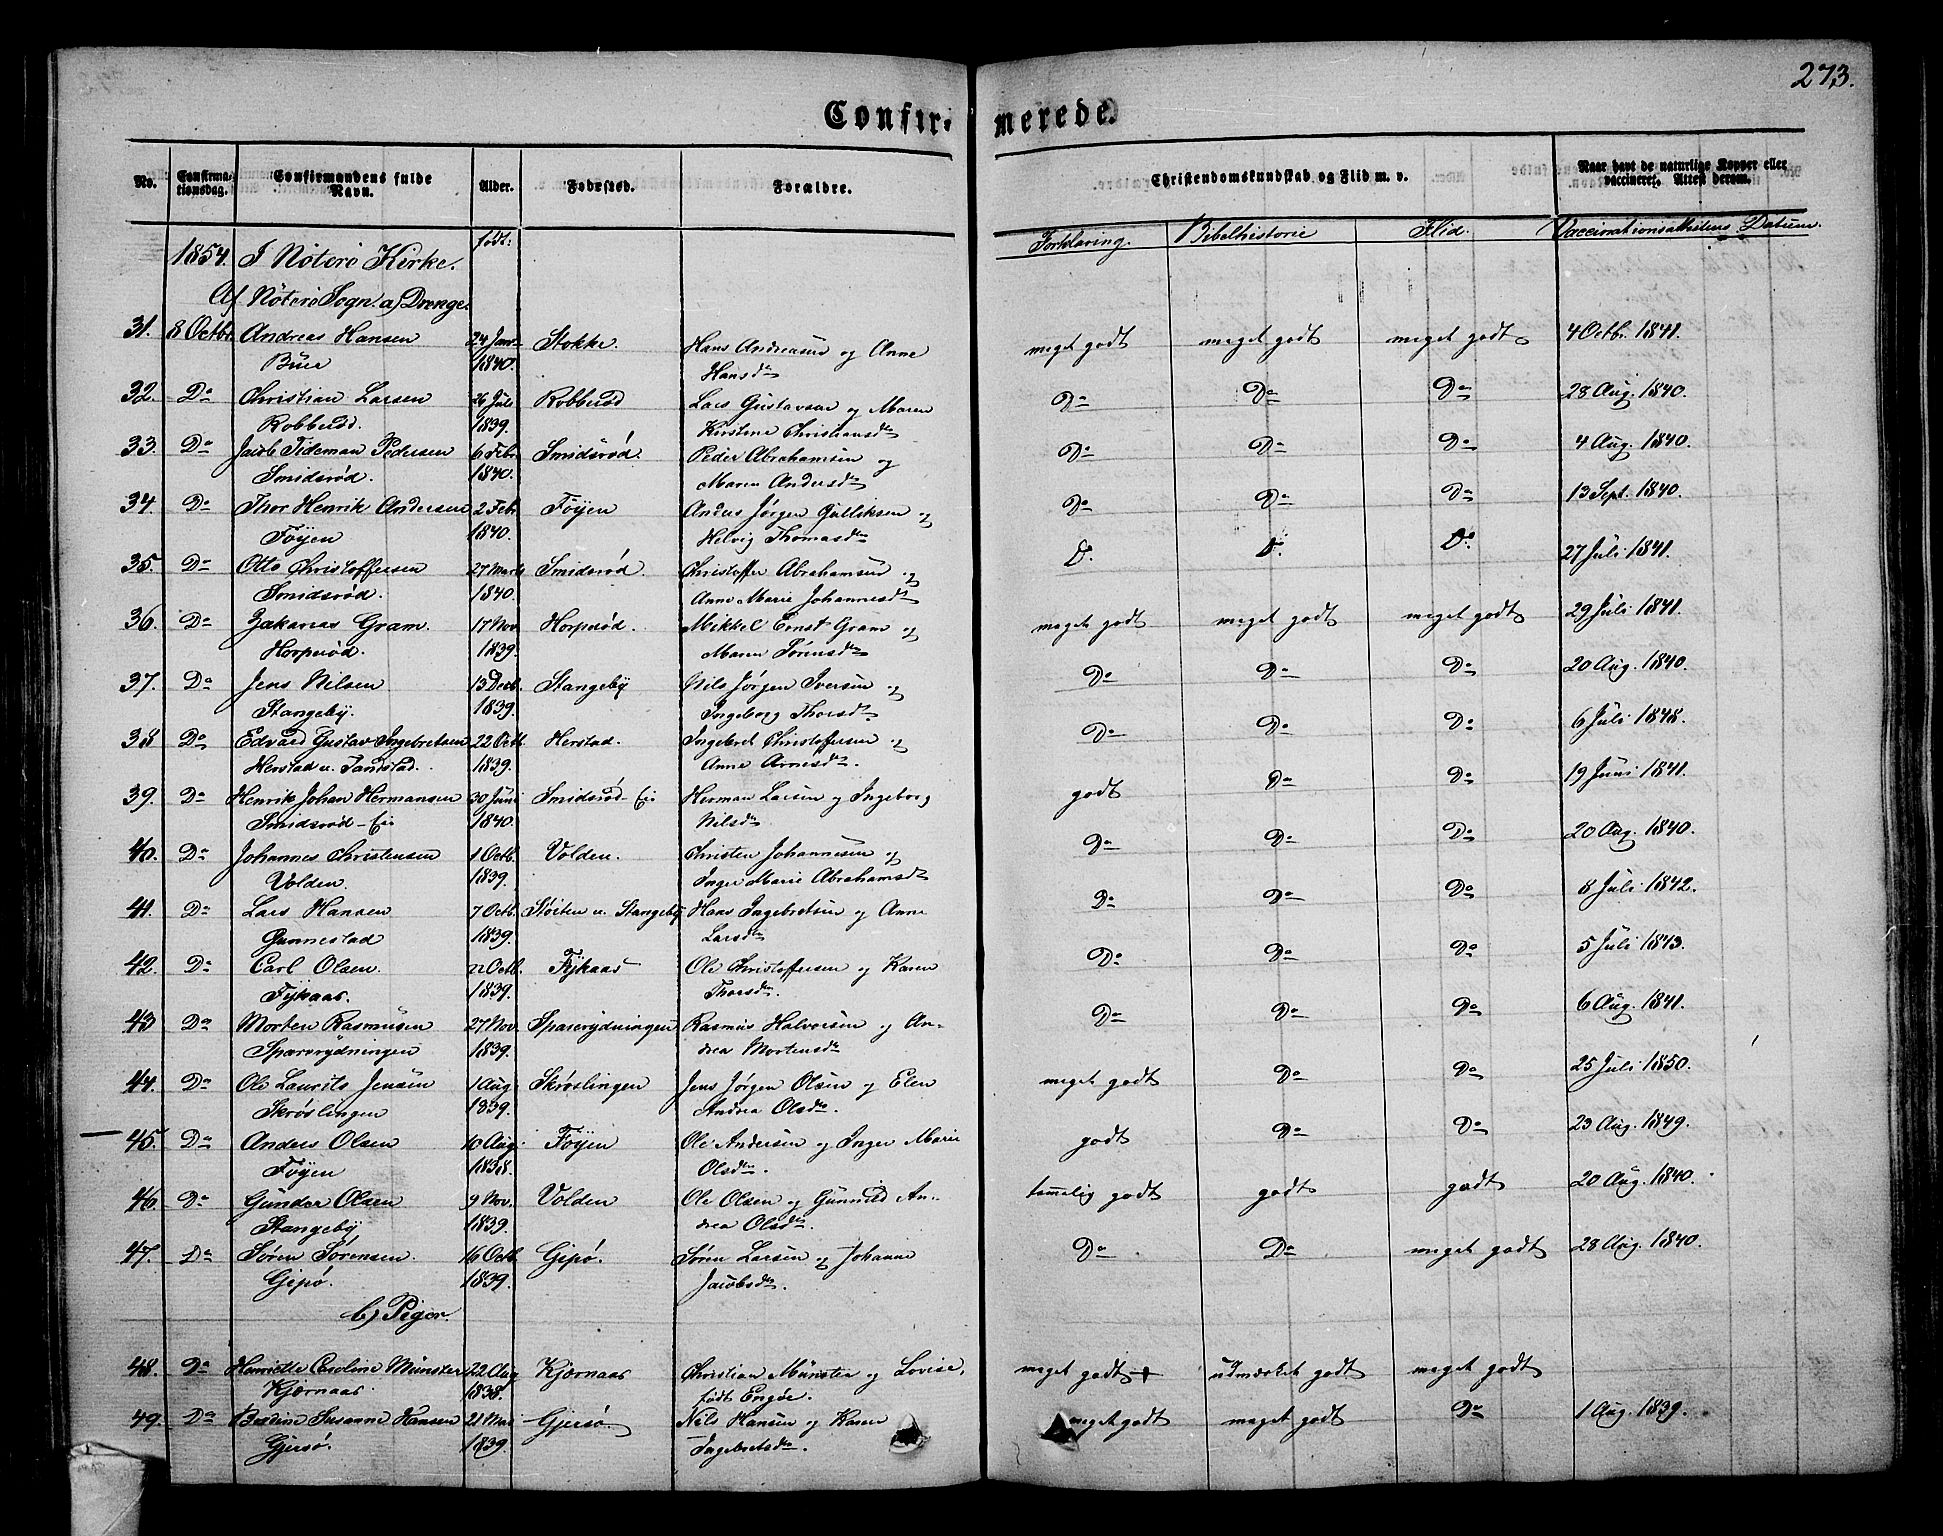 273.
Confirmerede.
No. Confirmationsdag. Confirmandens fulde Navn. Alder. Fødested. Forældre. Christendomskundskab og Flid m. v. Naar havt de naturlige Kopper eller vaccineret, Attest derom.
født: Forklaring. Bibelhistorie Flid. Vaccinationsattestens Datum.
1854. I Nøterø Kirke.
Af Nøterø Sogn. a) Drenge.
31. 8 Octbr. Andreas Hansen 24 Jan. Stokke. Hans Andreasen og Anne meget godt meget godt meget godt 4 Octb. 1841.
Bue 1840. Hansdn
32. Do Christian Larsen 26 Juli Robbersd Lars Gustavsen og Maren Do Do Do 28 Aug. 1840.
Robbersd. 1839. Kirstine Christiansdn
33. Do Jacob Tideman Pedersen 6 Febr Smidsrød. Peder Abrahamsen og Do Do Do 4 Aug. 1840.
Smidsrød. 1840. Maren Andersdn
34. Do Thor Henrik Andersen 2 Febr Føyen Anders Jørgen Gulliksen og Do Do Do 13 Sept. 1840.
Føyen 1840. Helvig Thomasdn
35. Do Otto Christoffersen 27 Marts Smidsrød. Christoffer Abrahamsen og D. D. Do 27 Juli 1841.
Smidsrød. 1840. Anne Marie Johannesdn
36. Do Zakarias Gram. 17 Nov. Horperød. Mikkel Ernst Gram og meget godt meget godt meget godt 29 Juli 1841.
Horperød. 1839. Maren Sørensdn
37. Do Jens Nilsen 13 Decb. Stangeby Nils Jørgen Iversen og Do Do Do 20 Aug. 1840.
Stangeby. 1839. Ingeborg Thorsdn
38 Do Edvard Gustav Ingebretsen 22 Octb. Herstad. Ingebret Christoffersen og Do Do Do 6 Juli 1848.
Herstad u. Sandstad. 1839. Anne Arnesdn.
39. Do Henrik Johan Hermansen 30 Juni Smidsrød-Eie Herman Larsen og Ingeborg godt Do Do 19 Juni 1841.
Smidsrød-Eie 1840. Nilsdn
40. Do Johannes Christensen 1 Octb. Volden. Christen Johannesen og Do Do Do 20 Aug. 1840.
Volden. 1839. Inger Marie Abrahamsdn
41. Do Lars Hansen 7 Octb. Støiten u. Stangeby Hans Ingebretsen og Anne Do Do Do 8 Juli 1842.
Gunnestad 1839. Larsdn
42. Do Carl Olsen. 22 Octb. Fykaas Ole Christoffersen og Karen Do Do Do 5 Juli 1843.
Fykaas. 1839. Thorsdn.
43 Do Morten Rasmusen 27 Nov. Sparerydningen Rasmus Halvorsen og An- Do Do Do 6 Aug. 1841.
Sparerydningen 1839. drea Mortensdn
44. Do Ole Laurits Jensen 1 Aug. Skrøslingen Jens Jørgen Olsen og Elen meget godt Do Do 25 Juli 1850.
Skrøslingen 1839. Andrea Olsdn.
45. Do Anders Olsen 10 Aug. Føyen Ole Andersen og Inger Marie godt Do Do 23 Aug. 1849.
Føyen 1838. Olsdn.
46. Do Gunder Olsen 9 Nov. Volden Ole Olsen og Gunnild An- temmelig godt godt godt 20 Aug. 1840.
Stangeby 1839. drea Olsdn.
47. Do Søren Sørensen. 16 Octb. Gipø. Søren Larsen og Johanne Do Do meget godt 28 Aug. 1840.
Gipø. 1839. Jacobsdn
b) Piger.
48. Do Henriette Caroline Münster 22 Aug Kjørnaas Christian Münster og Lovise, meget godt + udmærket godt meget godt
Kjørnaas. 1838. født Engøe.
49. Do Bredine Susanne Hansen 21 Mai Gjersø Nils Hansen og Karen meget godt meget godt Do 1 Aug. 1839.
Gjersø. 1839. Ingebretsdn.